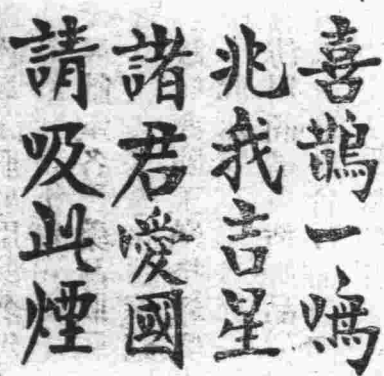 喜鵲一鳴
兆我吉星
諸君愛國
請吸此煙